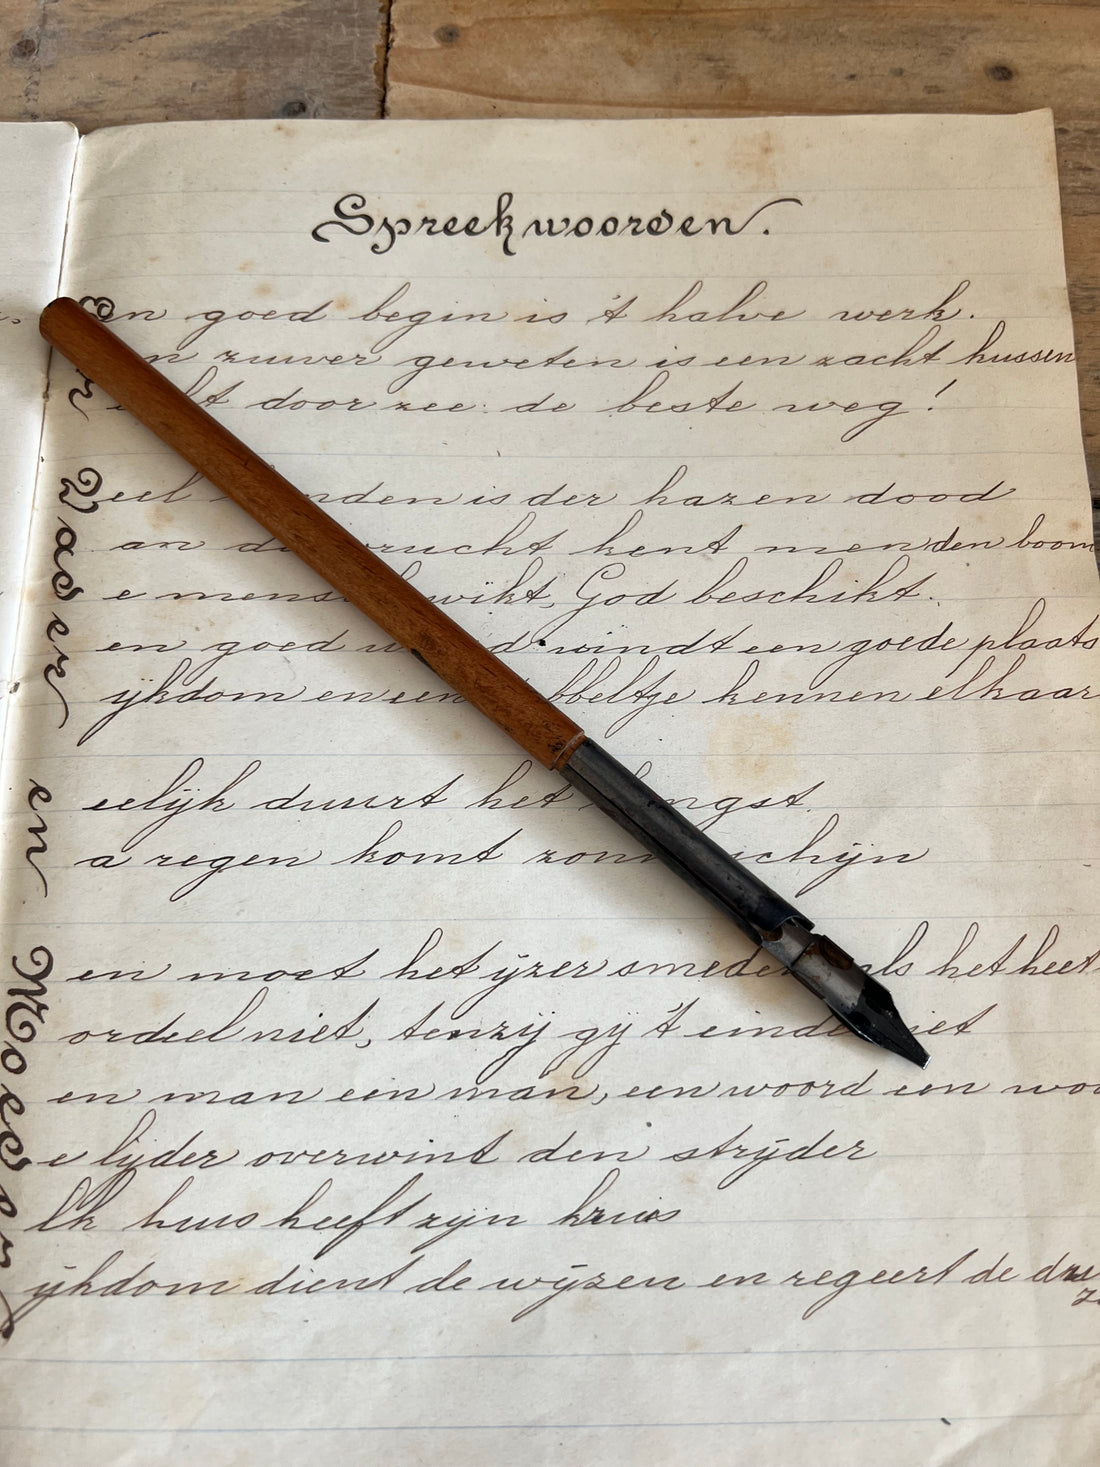 Spreekwoorden.
En goed begin is 't halve werk.
n zuiver geweten is een zacht kussen
door zee: de beste weg!
eel nden is der hazen dood
an de vrucht kent men den boom
e mens wikt, God beschikt.
en goed d vindt een goede plaats
ijkdom en een bbeltje kennen elkaar
eelijk duurt het langst.
a regen komt zonneschijn
en moet het ijzer smeden als het heet
ordeel niet, tenzij gij 't einde niet
en man een man, een woord een woo
e lijder overwint den strijder
lk huis heeft zijn kruis
ijkdom dient de wijzen en regeert de
Vader
en
Moeder